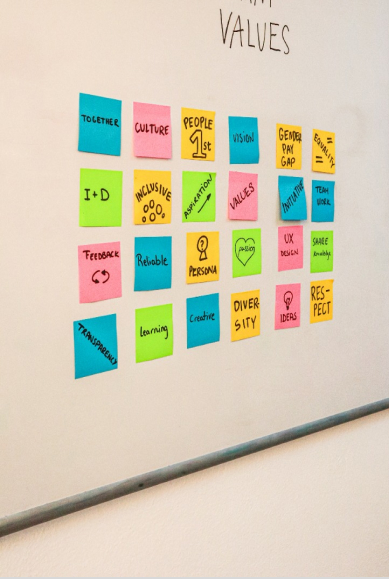 VALUES
TOGETHER
CULTURE
PEOPLE
1st
VISION
GENDER
PAY
GAP
EQUALITY
I+D
INCLUSIVE
ASPIRATION
VALUES
INITIATIVE
TEAM
WORK
FEEDBACK
Reliable
PERSONA
passion
UX
DESIGN
SHARE
knowledge
TRANSPARENCY
learning
Creative
DIVER-
SITY
IDEAS
RES-
PECT